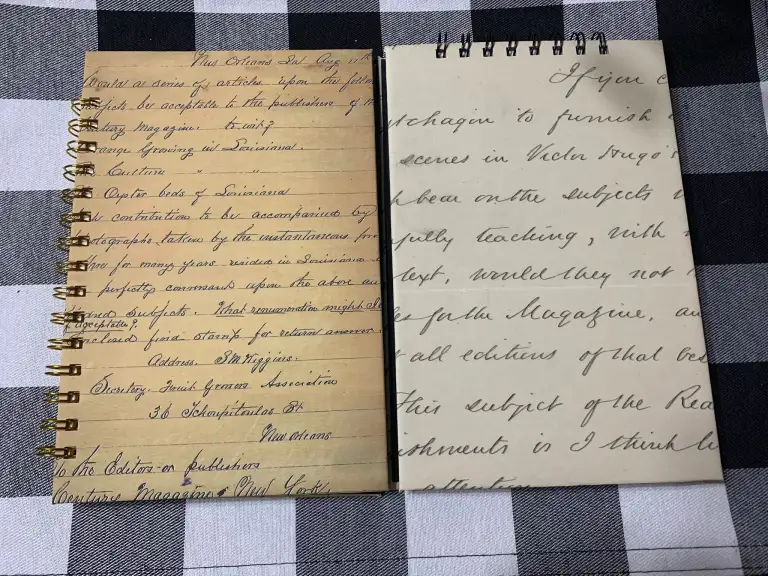 New Orleans La Aug 11th
Would a series of articles upon the follow
subjects be acceptable to the publishers of th
Century Magazine. to wit?
range Growing in Louisiana.
Culture " "
Oyster beds of Louisiana
contribution to be accompanied by
photographs taken by the instantaneous pro
for many years resided in Louisiana
perfectly command upon the above
subjects. What renumeration might I
acceptable?
nclosed find stamp for return answer.
Address. S.M. Wiggins.
Secretary. Fruit Growers Association
36 Tchoupitoulas St
New Orleans
To the Editors or publishers
Century Magazine, New York
If you c
to furnish
scenes in Victor Hugo's
bear on the subjects
fully teaching, with
text, would they not
for the Magazine, an
all editions of that bes
This subject of the Rea
ishments is I think
attention